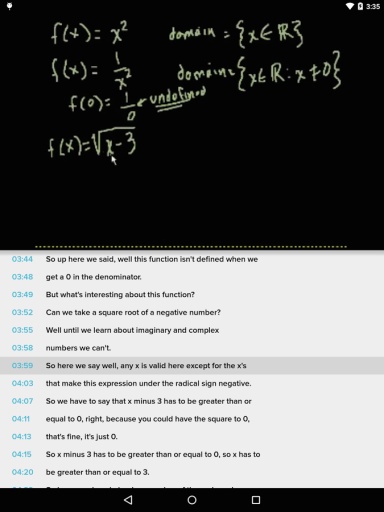 3:35
f(x) = x² domain = {x ∈ ℝ}
f(x) = 1/x² domain = {x ∈ ℝ : x ≠ 0}
f(0) = 1/0 ← undefined
f(x) = √(x-3)
03:44 So up here we said, well this function isn't defined when we
03:48 get a 0 in the denominator.
03:49 But what's interesting about this function?
03:52 Can we take a square root of a negative number?
03:55 Well until we learn about imaginary and complex
03:58 numbers we can't.
03:59 So here we say well, any x is valid here except for the x's
04:03 that make this expression under the radical sign negative.
04:07 So we have to say that x minus 3 has to be greater than or
04:11 equal to 0, right, because you could have the square to 0,
04:13 that's fine, it's just 0.
04:15 So x minus 3 has to be greater than or equal to 0, so x has to
04:20 be greater than or equal to 3.